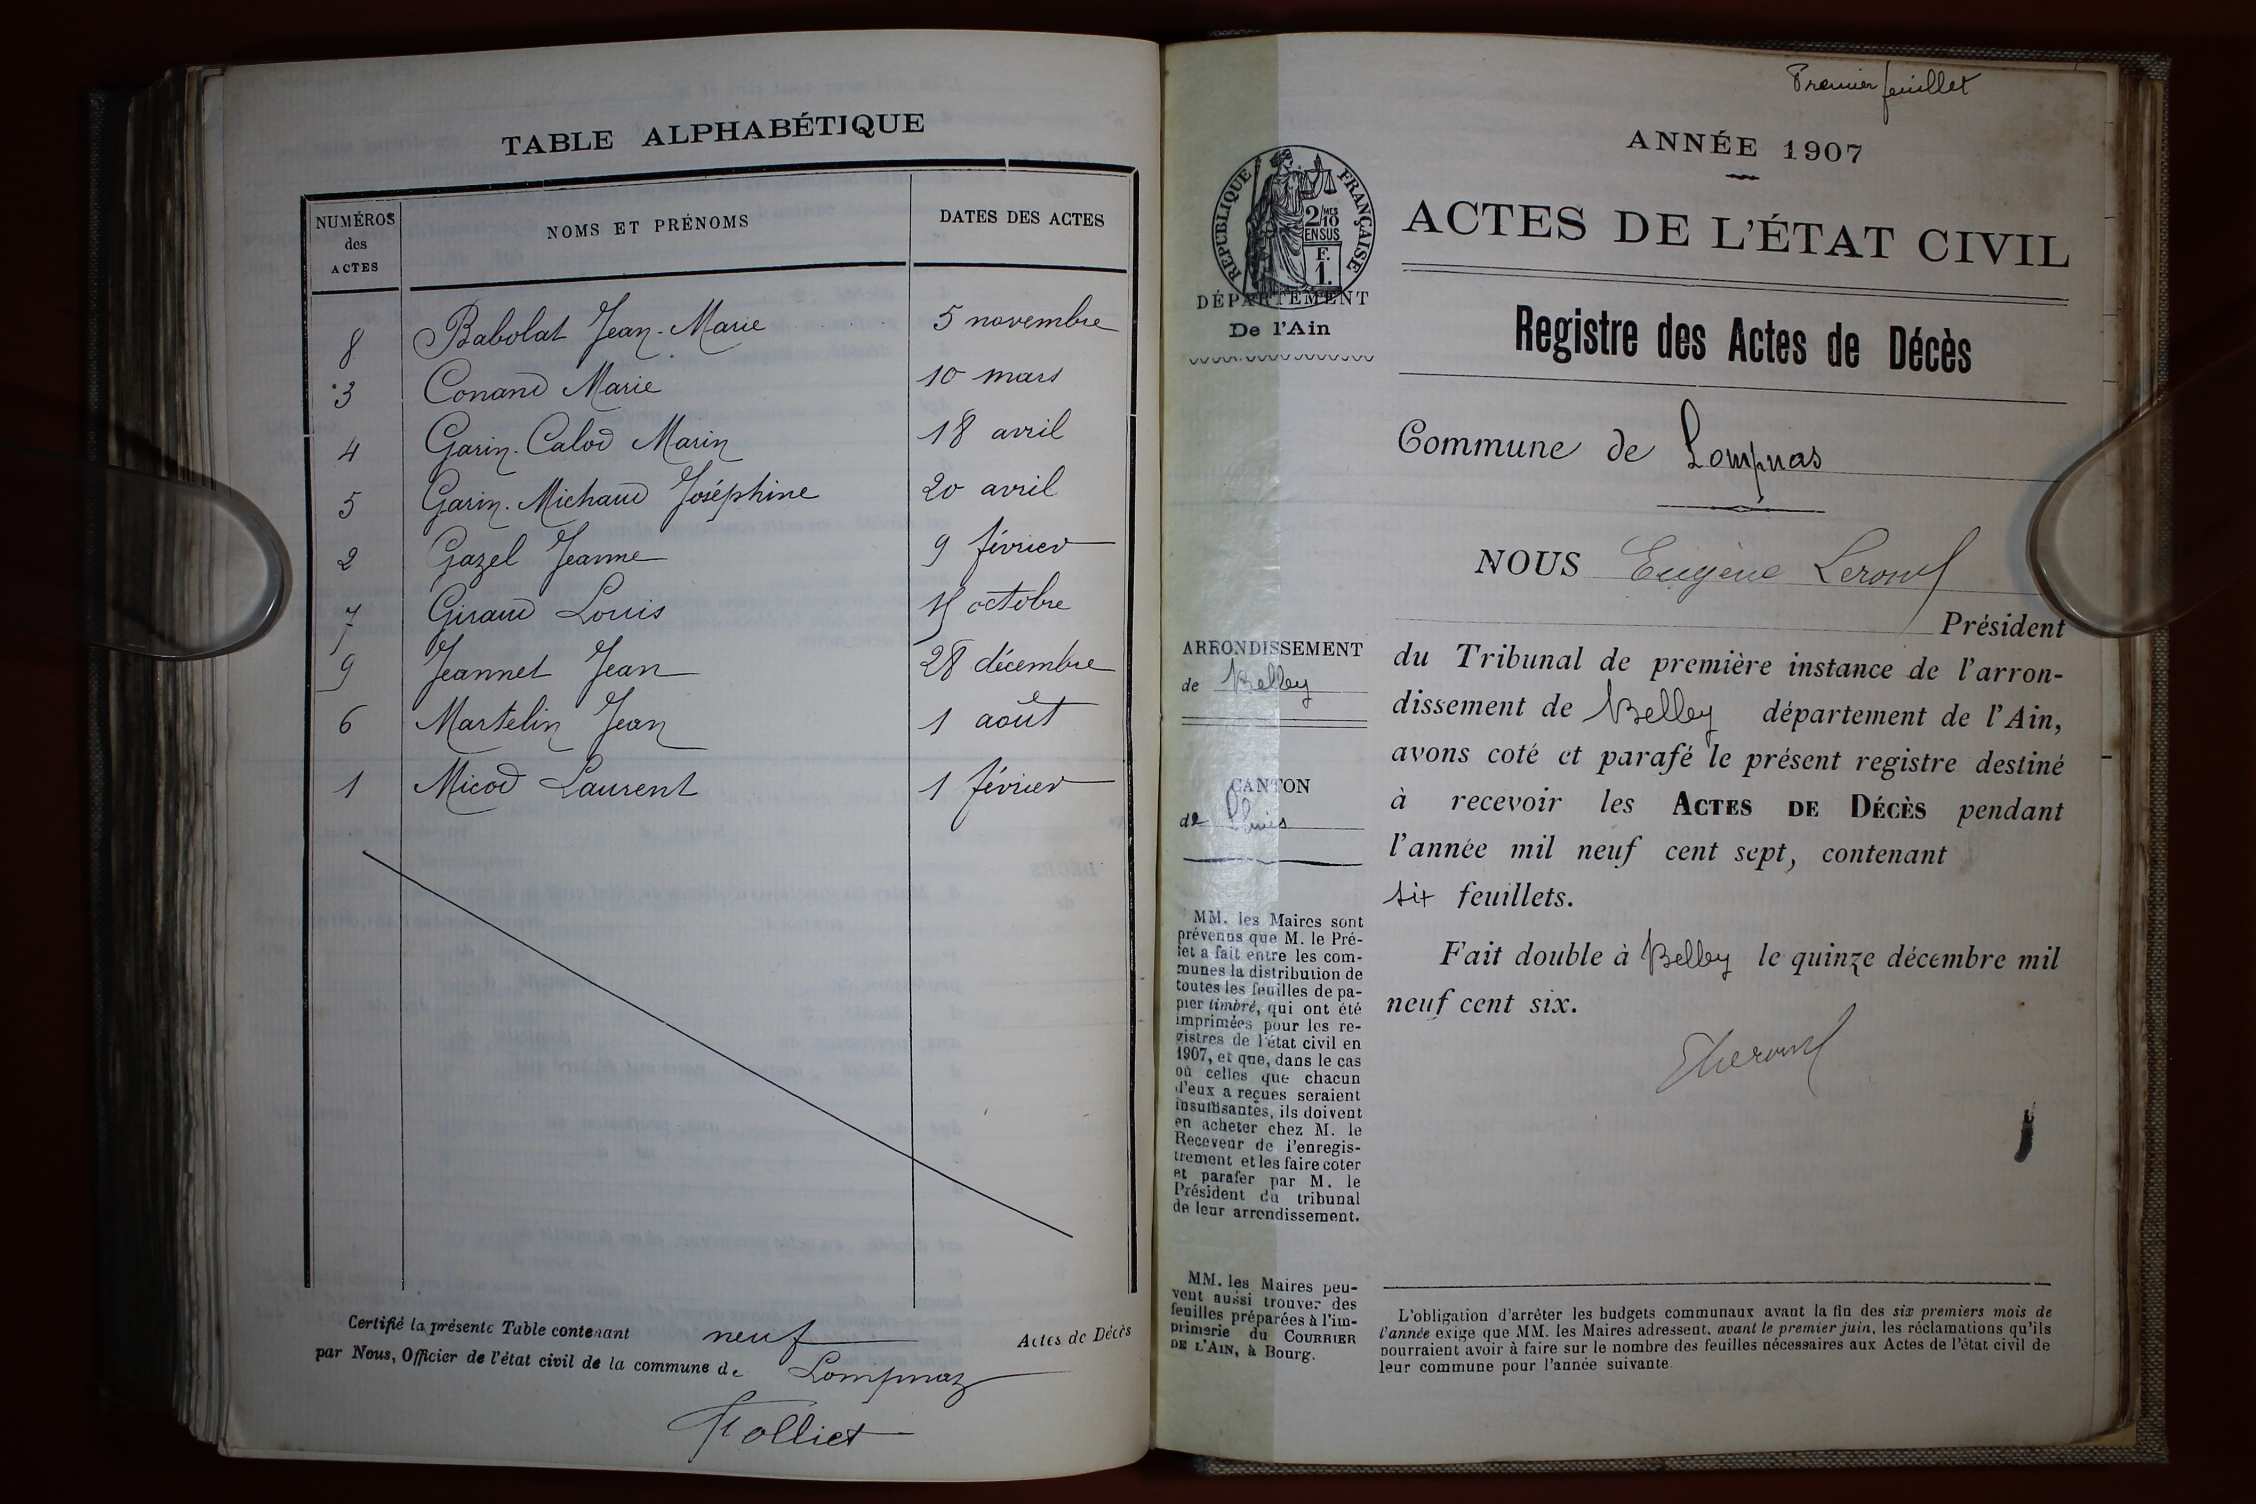 TABLE ALPHABÉTIQUE
NUMÉROS des ACTES
NOMS ET PRÉNOMS
DATES DES ACTES
8 Babolat Jean-Marie 5 novembre
3 Conand Marie 10 mars
4 Garin-Calod Marin 18 avril
5 Garin-Michaud Joséphine 20 avril
2 Gazel Jeanne 9 février
7 Giraud Louis octobre
9 Jeannet Jean 28 décembre
6 Martelin Jean 1 août
1 Micod Laurent 1 février
Certifié la présente Table contenant neuf Actes de Décès
par Nous, Officier de l'état civil de la commune de Lompnaz
Premier feuillet
ANNÉE 1907
RÉPUBLIQUE FRANÇAISE
2/10 MES
EN SUS
F.
1.
DÉPARTEMENT
De l'Ain
ACTES DE L'ÉTAT CIVIL
Registre des Actes de Décès
Commune de Lompnas
NOUS Eugène
Président
du Tribunal de première instance de l'arron-
dissement de Belley département de l'Ain,
avons coté et parafé le présent registre destiné
à recevoir les ACTES DE DÉCÈS pendant
l'année mil neuf cent sept, contenant
six feuillets.
Fait double à Belley le quinze décembre mil
neuf cent six.
ARRONDISSEMENT
de Belley
CANTON
de Lhuis
MM. les Maires sont
prévenus que M. le Pré-
fet a fait entre les com-
munes la distribution de
toutes les feuilles de pa-
pier timbré, qui ont été
imprimées pour les re-
gistres de l'état civil en
1907, et que, dans le cas
où celles que chacun
d'eux a reçues seraient
insuffisantes, ils doivent
en acheter chez M. le
Receveur de l'enregis-
trement et les faire coter
et parafer par M. le
Président du tribunal
de leur arrondissement.
MM. les Maires peu-
vent aussi trouver des
feuilles préparées à l'im-
primerie du COURRIER
DE L'AIN, à Bourg.
L'obligation d'arrêter les budgets communaux avant la fin des six premiers mois de
l'année exige que MM. les Maires adressent, avant le premier juin, les réclamations qu'ils
pourraient avoir à faire sur le nombre des feuilles nécessaires aux Actes de l'état civil de
leur commune pour l'année suivante.